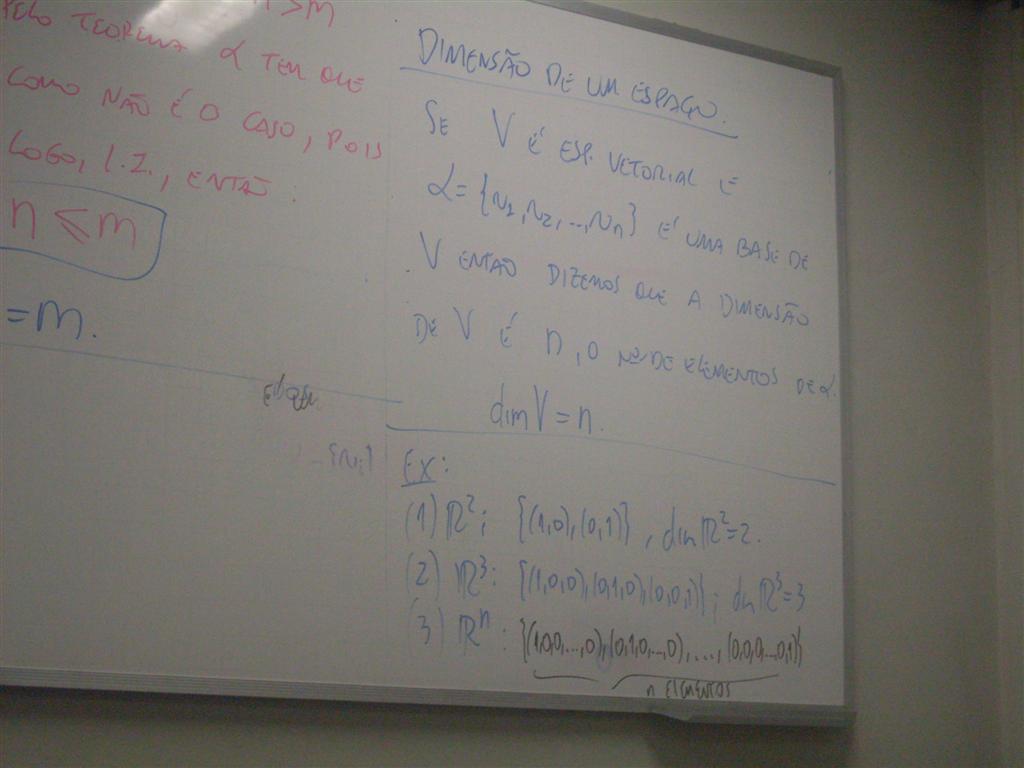 n > m
PELO TEOREMA α TEM QUE
COMO NÃO É O CASO, POIS
LOGO, L.I., ENTÃO
n ≤ m
= m.
DIMENSÃO DE UM ESPAÇO.
SE V É ESP. VETORIAL E
α = {v1, v2, ..., vn} É UMA BASE DE
V ENTÃO DIZEMOS QUE A DIMENSÃO
DE V É n, O Nº DE ELEMENTOS DE α.
dim V = n.
EX:
(1) ℝ²: {(1,0),(0,1)}, dim ℝ² = 2.
(2) ℝ³: {(1,0,0),(0,1,0),(0,0,1)}; dim ℝ³ = 3
(3) ℝⁿ: {(1,0,0,...,0),(0,1,0,...,0),...,(0,0,0,...,0,1)}
n ELEMENTOS